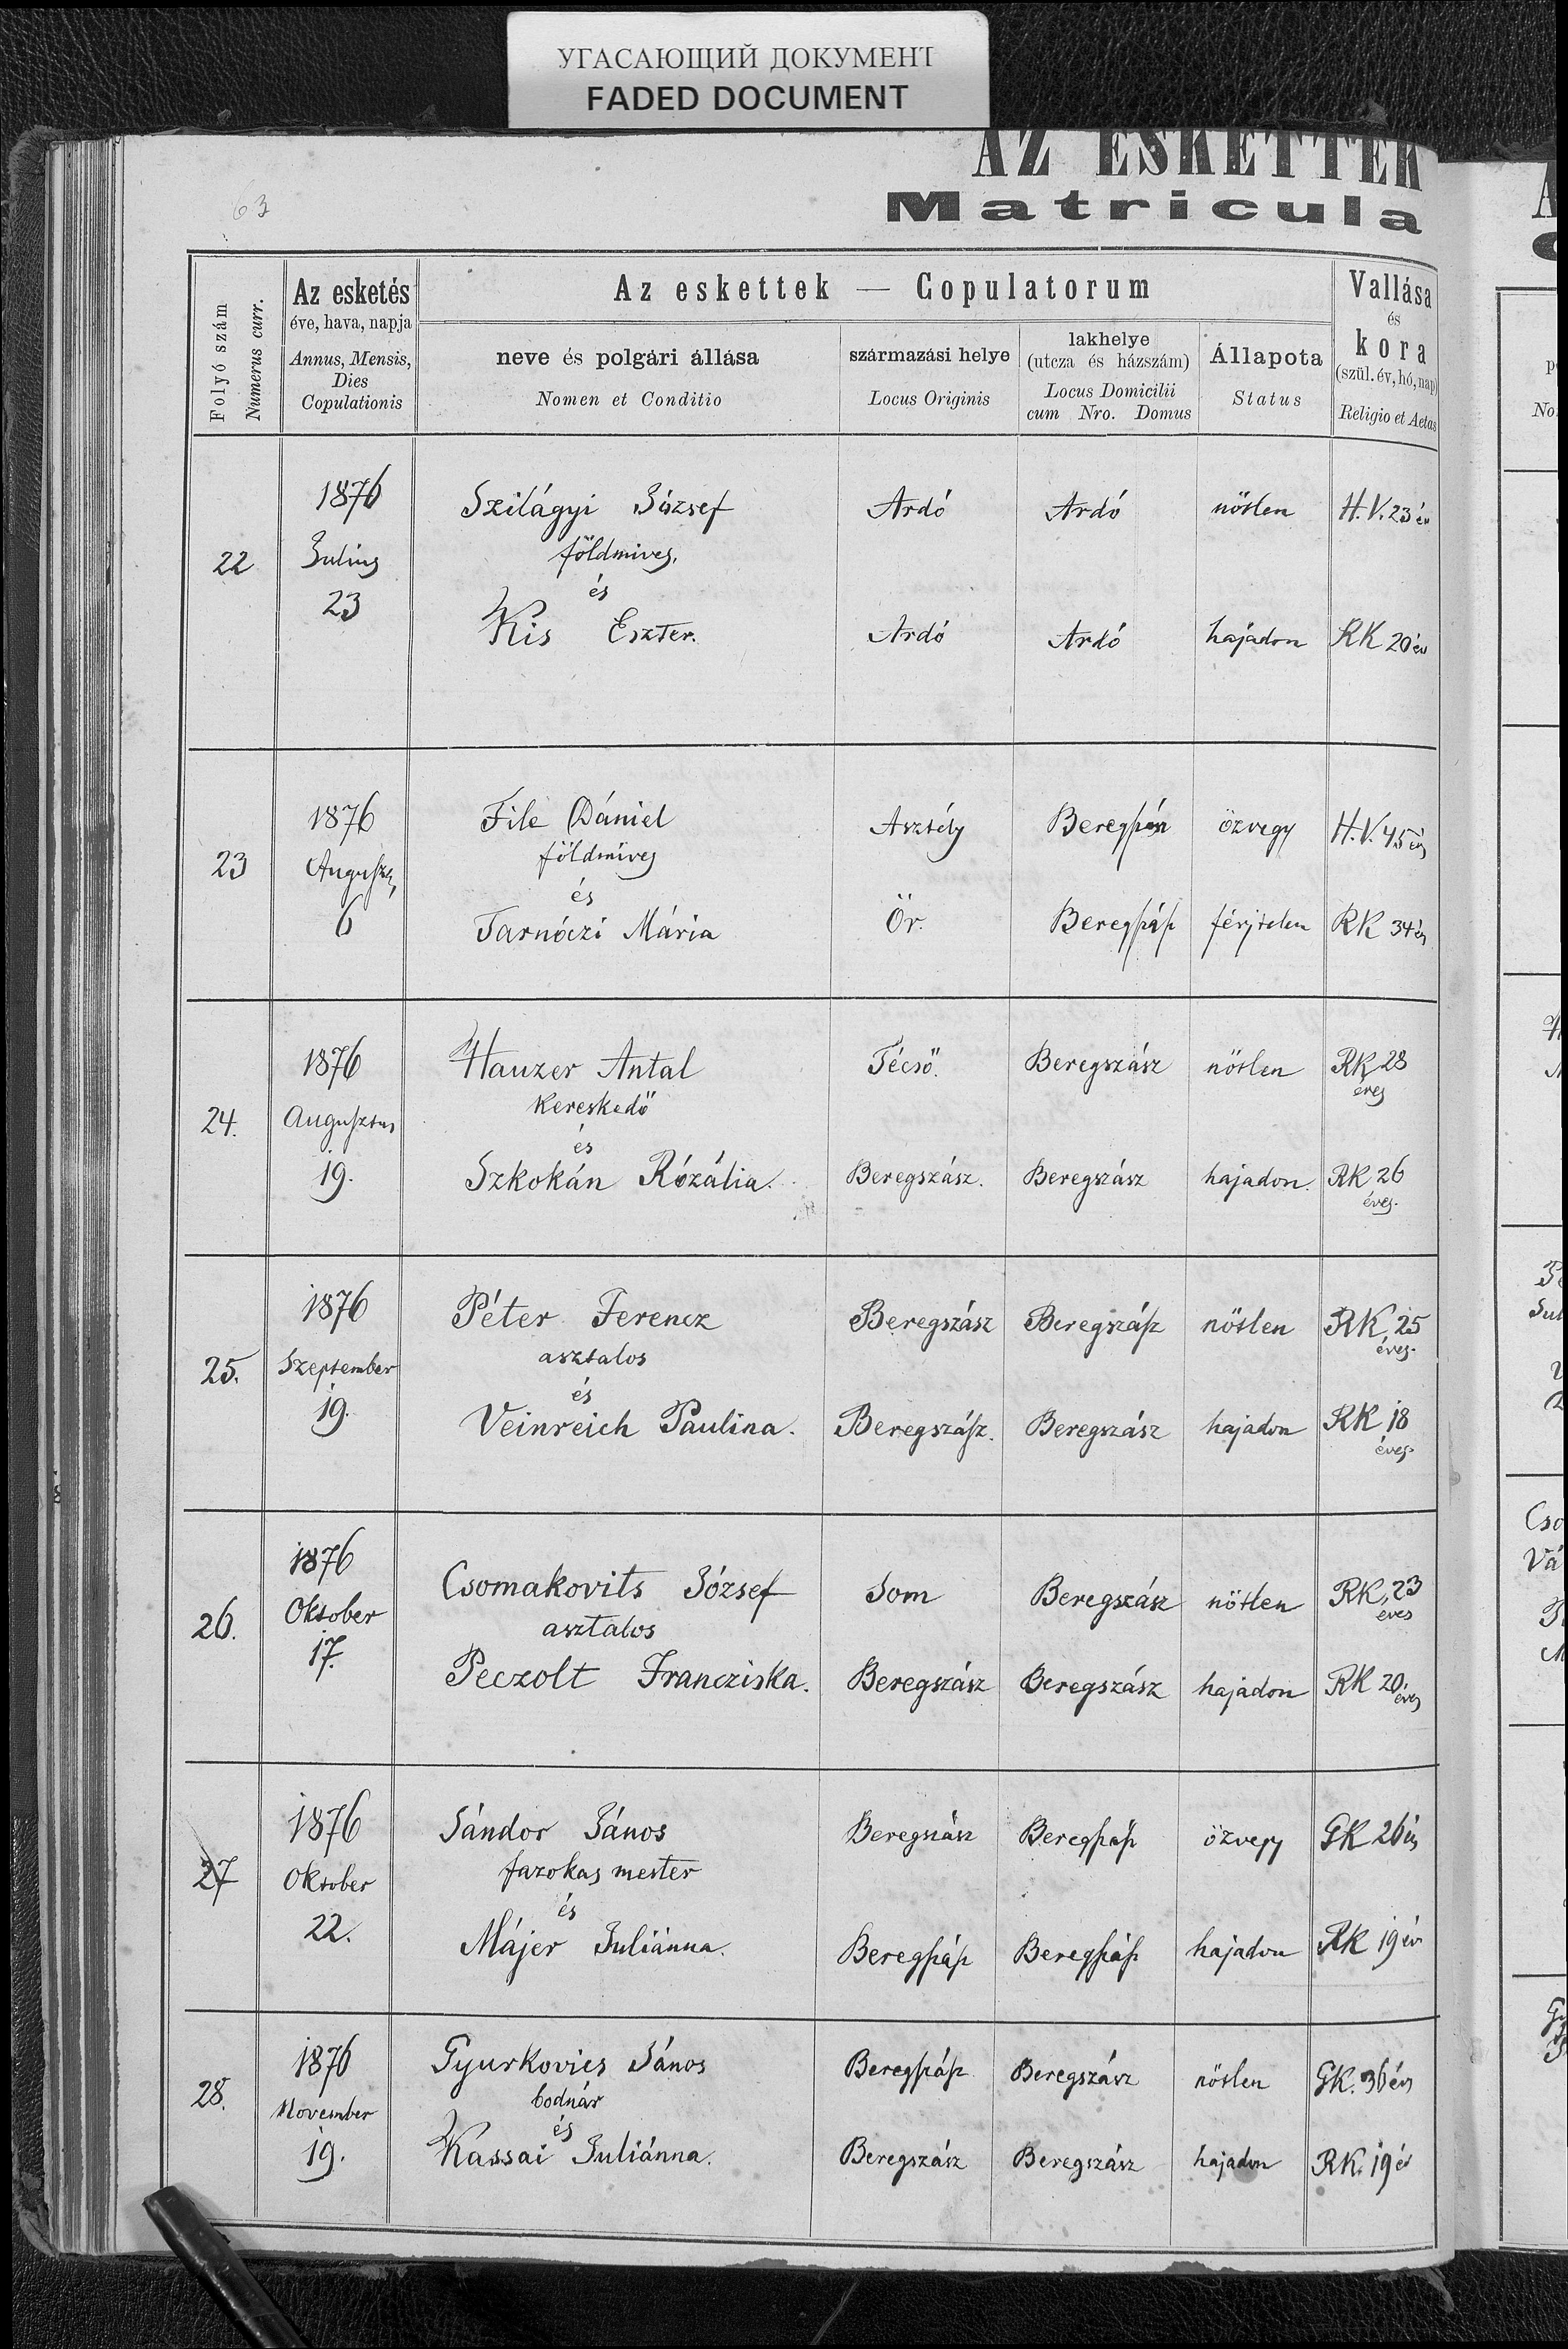 УГАСАЮЩИЙ ДОКУМЕНТ
FADED DOCUMENT
63
AZ ESKETTEK
Matricula
Folyó szám
Numerus curr.
Az esketés
éve, hava, napja
Annus, Mensis,
Dies
Copulationis
Az eskettek — Copulatorum
neve és polgári állása
Nomen et Conditio
származási helye
Locus Originis
lakhelye
(utcza és házszám)
Locus Domicilii
cum Nro. Domus
Állapota
Status
Vallása
és
kora
(szül. év, hó, nap)
Religio et Aetas
22
1876
Julius
23
Szilágyi József
földmives,
és
Kis Eszter.
Ardó Ardó nőtlen H.V. 23 év
Ardó Ardó hajadon RK 20 év
23
1876
Augusztus
6
File Dániel
földmives
és
Tarnóczi Mária
Asztély Beregszász özvegy H.V. 45 év
Őr. Beregszász férjtelen RK 34 év
24.
1876
Augusztus
19.
Hauzer Antal
kereskedő
és
Szkokán Rózália.
Técső. Beregszász nőtlen RK 28
éves
Beregszász. Beregszász hajadon. RK 26
éves.
25.
1876
Szeptember
19.
Péter Ferencz
asztalos
és
Veinreich Paulina.
Beregszász Beregszász nőtlen RK, 25
éves.
Beregszász. Beregszász hajadon RK 18
éves.
26.
1876
Oktober
17.
Csomakovits József
asztalos
Peczolt Francziska.
Som Beregszász nőtlen RK, 23
éves
Beregszász Beregszász hajadon RK 20 éves
27
1876
Oktober
22.
Sándor János
fazokas mester
és
Májer Juliánna.
Beregszász Beregszász özvegy GK 26 év
Beregszász Beregszász hajadon RK 19 év
28.
1876
November
19.
Gyurkovics János
bodnár
és
Kassai Juliánna.
Beregszász Beregszász nőtlen GK. 36 év
Beregszász Beregszász hajadon RK. 19 év